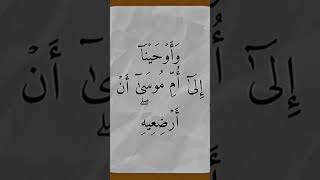 وَأَوۡحَيۡنَآ
إِلَىٰٓ أُمِّ مُوسَىٰٓ أَنۡ
أَرۡضِعِيهِۖ